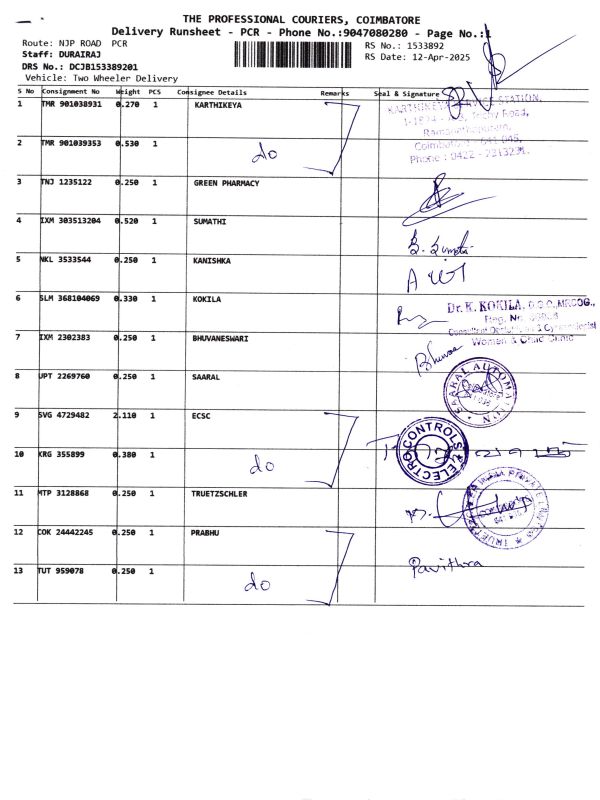 THE PROFESSIONAL COURIERS, COIMBATORE
Delivery Runsheet - PCR - Phone No.:9047080280 - Page No.:1
Route: NJP ROAD PCR
RS No.: 1533892
Staff: DURAIRAJ
RS Date: 12-Apr-2025
DRS No.: DCJB153389201
Vehicle: Two Wheeler Delivery
S No Consignment No Weight PCS Consignee Details Remarks Seal & Signature
1 TMR 901038931 0.270 1 KARTHIKEYA
Trichy Road,
Ramanathapuram,
2 TMR 901039353 0.530 1 do
Phone : 0422 - 2313231.
3 TNJ 1235122 0.250 1 GREEN PHARMACY
4 IXM 303513204 0.520 1 SUMATHI
5 NKL 3533544 0.250 1 KANISHKA
6 SLM 368104069 0.330 1 KOKILA
Dr. K. KOKILA,
7 IXM 2302383 0.250 1 BHUVANESWARI
Women & Child Clinic
8 UPT 2269760 0.250 1 SAARAL
SAARAL AUTOMATION
9 SVG 4729482 2.110 1 ECSC
ELECTRO CONTROLS
10 KRG 355899 0.380 1 do
11 MTP 3128868 0.250 1 TRUETZSCHLER
12 COK 24442245 0.250 1 PRABHU
Pavithra
13 TUT 959078 0.250 1 do